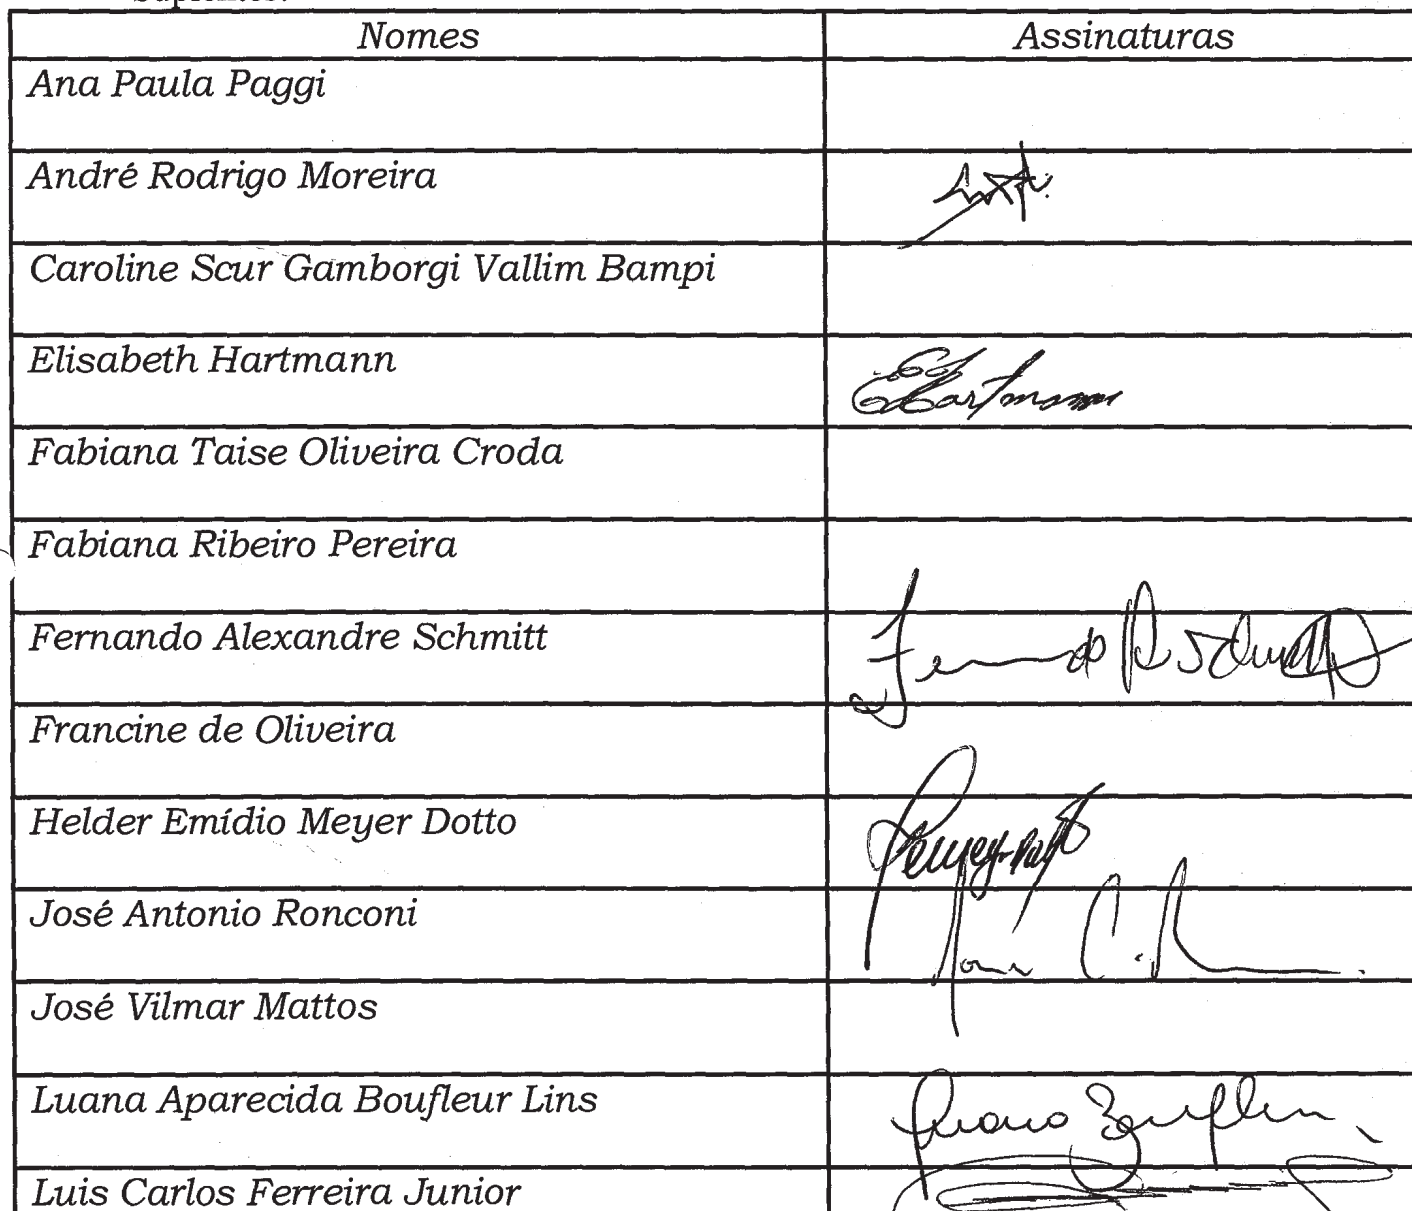 Suplentes:
Nomes Assinaturas
Ana Paula Paggi
André Rodrigo Moreira
Caroline Scur Gamborgi Vallim Bampi
Elisabeth Hartmann EHartmann
Fabiana Taise Oliveira Croda
Fabiana Ribeiro Pereira
Fernando Alexandre Schmitt
Francine de Oliveira
Helder Emídio Meyer Dotto
José Antonio Ronconi
José Vilmar Mattos
Luana Aparecida Boufleur Lins
Luis Carlos Ferreira Junior